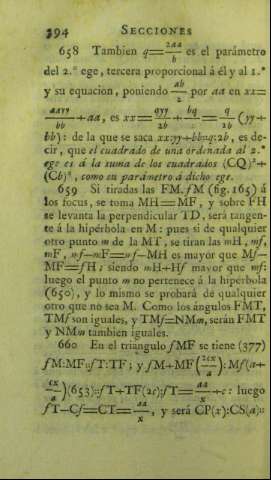 394 SECCIONES
658 Tambien q=2aa/b es el parámetro
del 2.º ege, tercera proporcional á él y al 1.º
y su equacion, poniendo ab/2 por aa en xx=
aayy/bb+aa, es xx=qyy/2b+bq/2=q/2b(yy+
bb): de la que se saca xx:yy+bb::q:2b, es de-
cir, que el cuadrado de una ordenada al 2.º
ege es á la suma de los cuadrados (CQ)²+
(Cb)², como su parámetro á dicho ege.
659 Si tiradas las FM, fM (fig. 165) á
los focus, se toma MH=MF, y sobre FH
se levanta la perpendicular TD, será tangen-
te á la hipérbola en M: pues si de qualquier
otro punto m de la MT, se tiran las mH, mf,
mF, mf-mF=mf-mH es mayor que Mf-
MF=fH; siendo mH+Hf mayor que mf:
luego el punto m no pertenece á la hipérbola
(650), y lo mismo se probará de qualquier
otro que no sea M. Como los ángulos FMT,
TMf son iguales, y TMf=NMm, serán FMT
y NMm tambien iguales.
660 En el triangulo fMF se tiene (377)
fM:MF::fT:TF; y fM+MF(2cx/a):Mf(a+
cx/a)(653)::fT+TF(2c):fT=aa/x+c: luego
fT-Cf=CT=aa/x, y será CP(x):CS(a)::